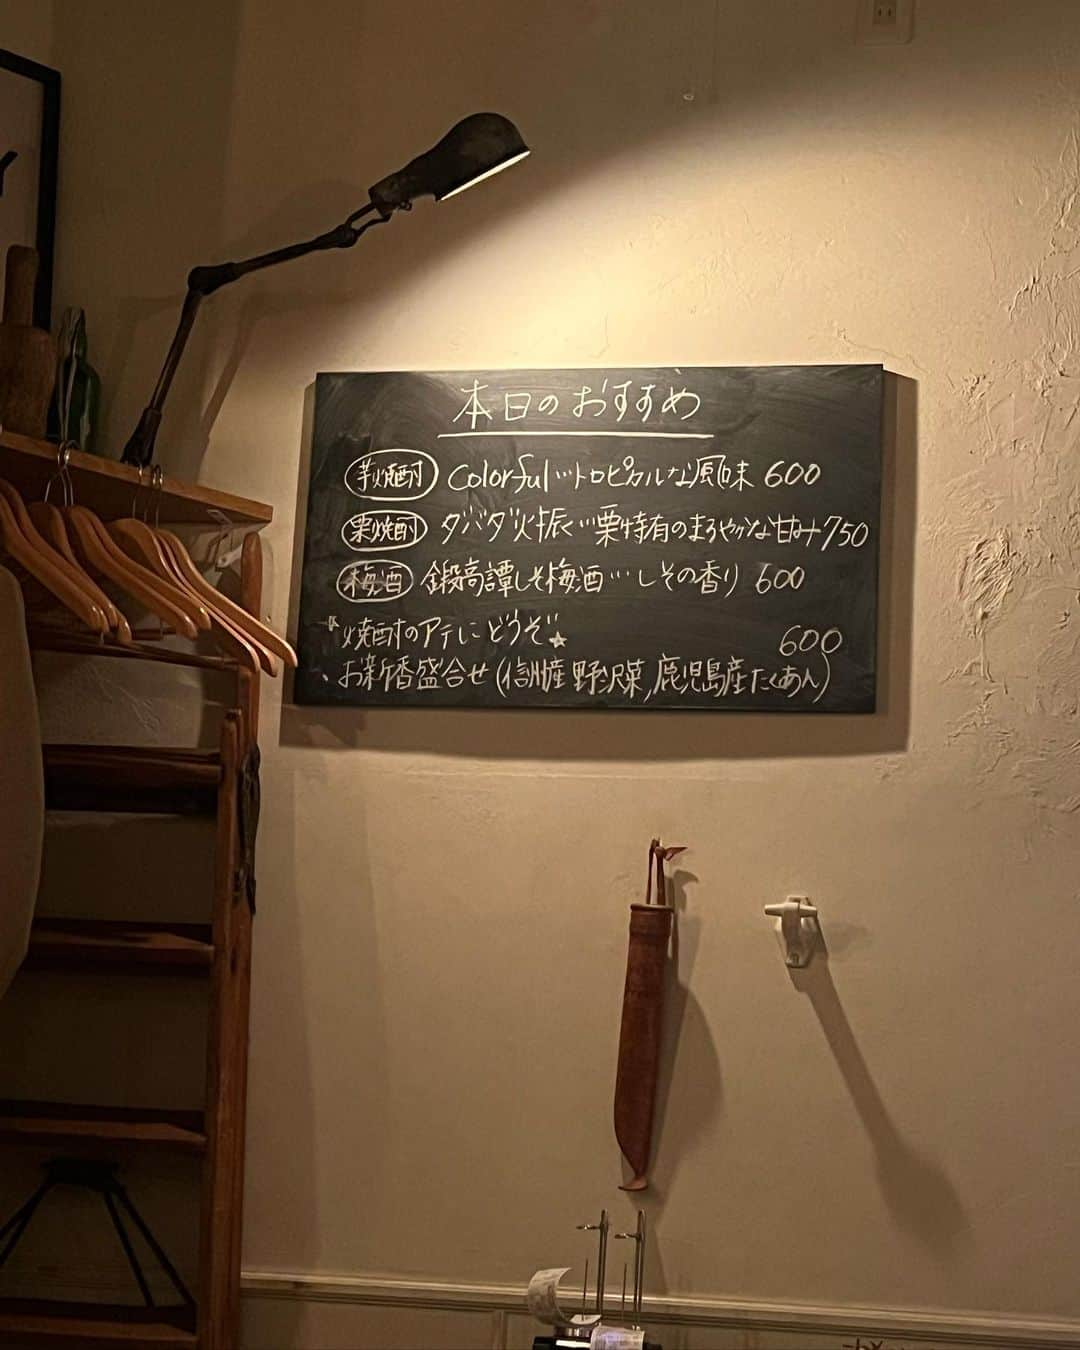 本日のおすすめ
芋焼酎 Colorful…トロピカルな風味 600
栗焼酎 ダバダ火振…栗特有のまろやかな甘み 750
梅酒 鍛高譚しそ梅酒…しその香り 600
焼酎のアテにどうぞ☆ 600
、お新香盛合せ(信州産野沢菜,鹿児島産たくあん)